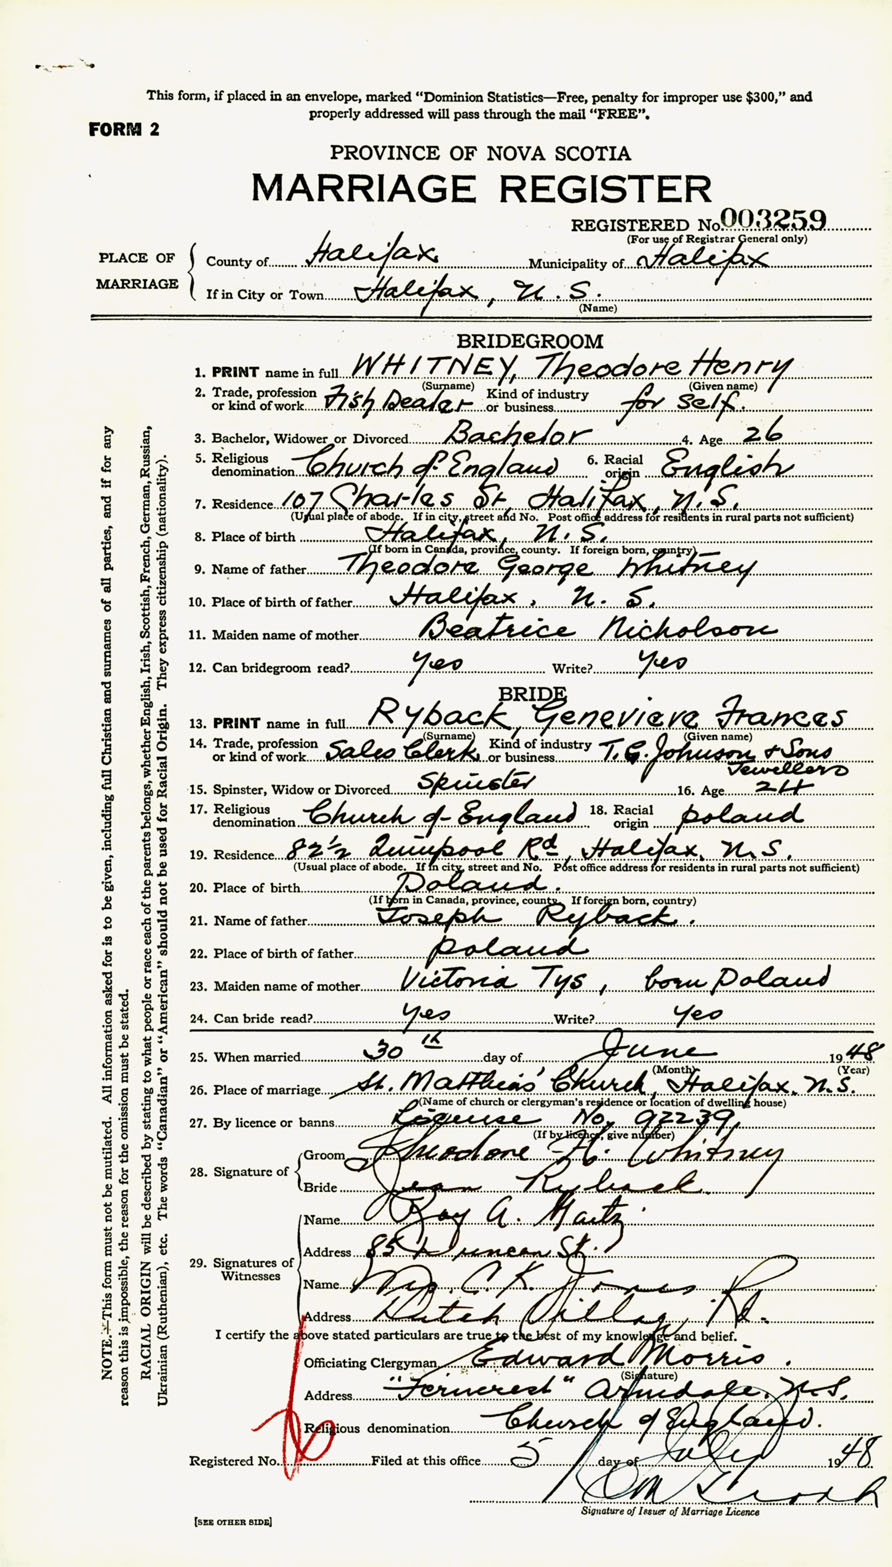 This form, if placed in an envelope, marked “Dominion Statistics—Free, penalty for improper use $300,” and
properly addressed will pass through the mail “FREE”.
FORM 2
PROVINCE OF NOVA SCOTIA
MARRIAGE REGISTER
REGISTERED No. 003259
(For use of Registrar General only)
PLACE OF MARRIAGE
County of Halifax Municipality of Halifax
If in City or Town Halifax, N.S.
(Name)
BRIDEGROOM
1. PRINT name in full WHITNEY, Theodore Henry
(Surname) (Given name)
2. Trade, profession or kind of work Fish Dealer Kind of industry or business for self.
3. Bachelor, Widower or Divorced Bachelor 4. Age 26
5. Religious denomination Church of England 6. Racial origin English
7. Residence 107 Charles St, Halifax, N.S.
(Usual place of abode. If in city, street and No. Post office address for residents in rural parts not sufficient)
8. Place of birth Halifax, N.S.
(If born in Canada, province, county. If foreign born, country)
9. Name of father Theodore George Whitney
10. Place of birth of father Halifax, N.S.
11. Maiden name of mother Beatrice Nicholson
12. Can bridegroom read? Yes Write? Yes
BRIDE
13. PRINT name in full Ryback, Genevieve Frances
(Surname) (Given name)
14. Trade, profession or kind of work Sales Clerk Kind of industry or business T.C. Johnson & Sons
Jewellers
15. Spinster, Widow or Divorced Spinster 16. Age 24
17. Religious denomination Church of England 18. Racial origin Poland
19. Residence 82½ Quinpool Rd, Halifax, N.S.
(Usual place of abode. If in city, street and No. Post office address for residents in rural parts not sufficient)
20. Place of birth Poland.
(If born in Canada, province, county. If foreign born, country)
21. Name of father Joseph Ryback.
22. Place of birth of father Poland
23. Maiden name of mother Victoria Tys, born Poland
24. Can bride read? Yes Write? Yes
25. When married 30th day of June 1948
(Month) (Year)
26. Place of marriage St. Matthias' Church, Halifax, N.S.
(Name of church or clergyman's residence or location of dwelling house)
27. By licence or banns License No. 92239
(If by licence, give number)
28. Signature of
Groom Theodore H. Whitney
Bride Jean Ryback
29. Signatures of Witnesses
Name Roy A. Martz
Address 85 Duncan St.
Name Mrs. C. K. Jones
Address Dutch Village Rd.
I certify the above stated particulars are true to the best of my knowledge and belief.
Officiating Clergyman Edward Morris.
(Signature)
Address "Ferncrest" Armdale, N.S.
Religious denomination Church of England.
Registered No. Filed at this office 5 day of July 1948
Signature of Issuer of Marriage Licence
[SEE OTHER SIDE]
NOTE.—This form must not be mutilated. All information asked for is to be given, including full Christian and surnames of all parties, and if for any
reason this is impossible, the reason for the omission must be stated.
RACIAL ORIGIN will be described by stating to what people or race each of the parents belongs, whether English, Irish, Scottish, French, German, Russian,
Ukrainian (Ruthenian), etc. The words “Canadian” or “American” should not be used for Racial Origin. They express citizenship (nationality).